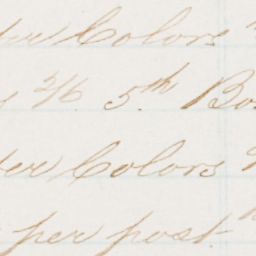 ter Colors
2/6 5th Bo
ter Colors
per post